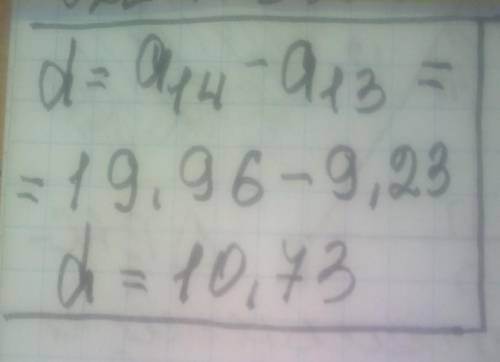 d = a₁₄ - a₁₃ =
= 19,96 - 9,23
d = 10,73